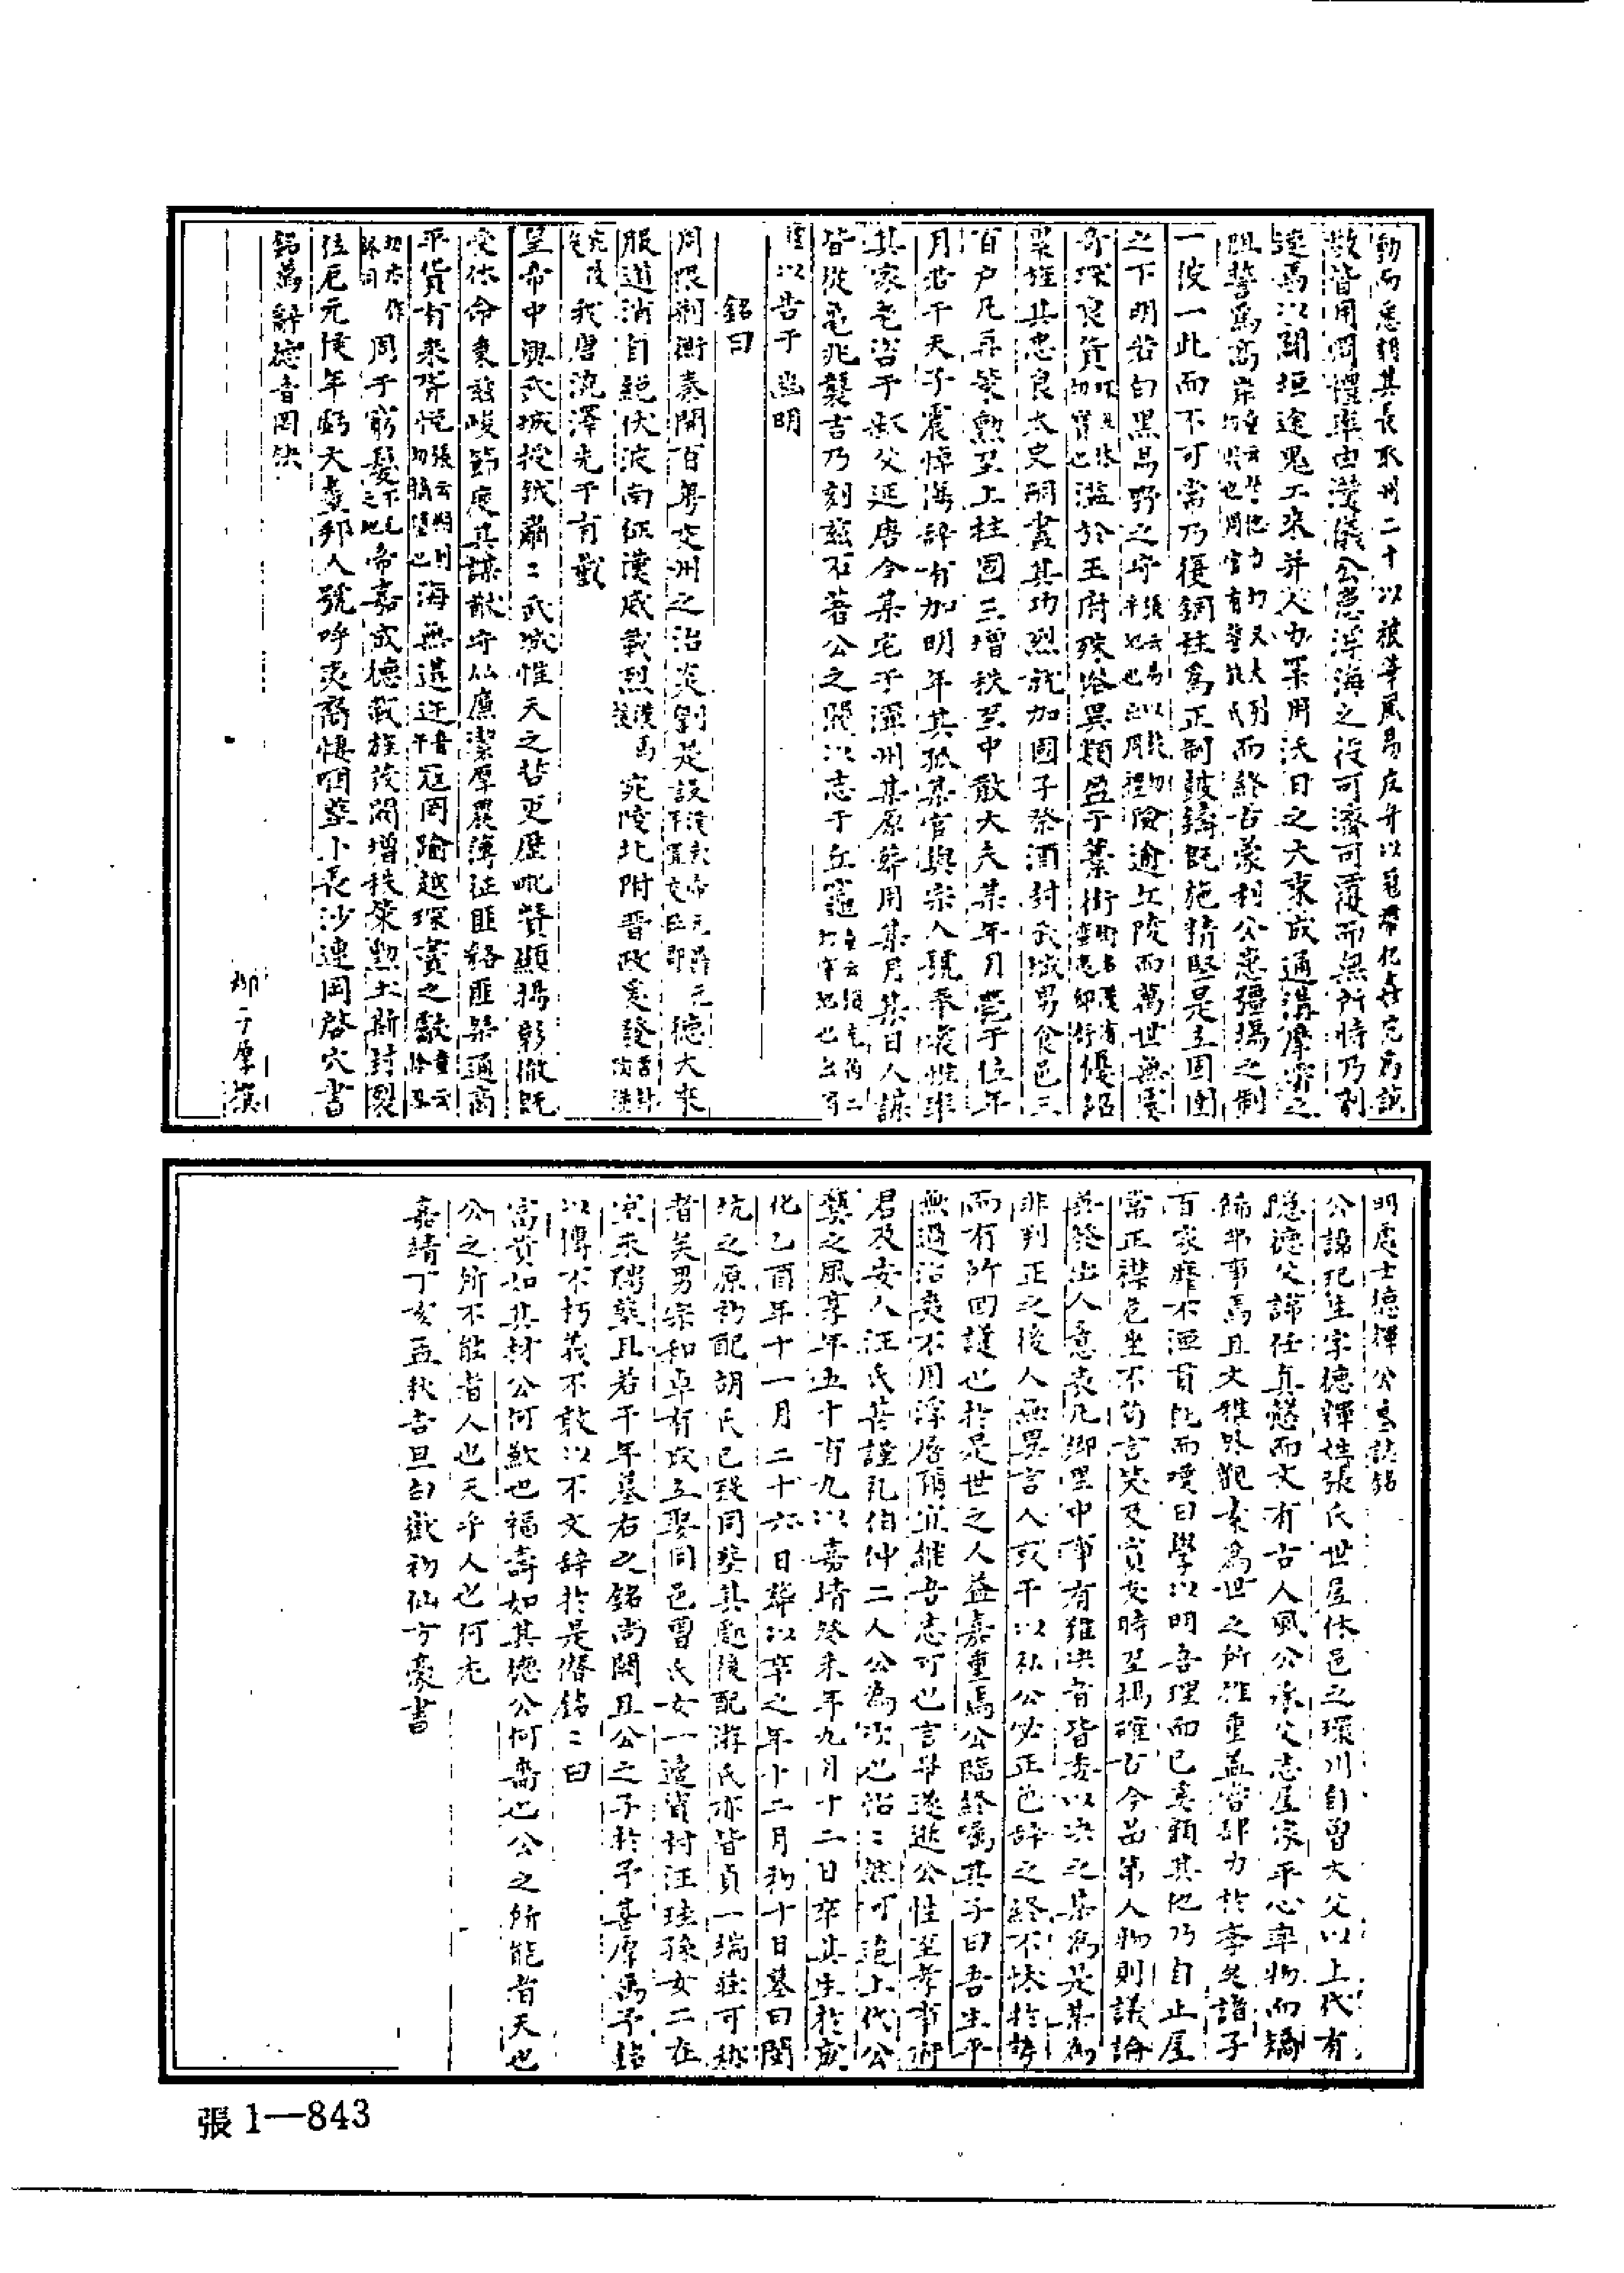 動而悉朝其長取州二十以被華風易皮弁以冠帶化姦宄為誠
敬皆用周禮率由漢儀公患浮海之役可濟可覆而無所恃乃刳
連烏以闢坦途鬼工來并人力罕用沃日之大束成通溝摩霄之
阻誓為高岸而終古蒙利公患疆埸之制
一彼一此而不可常乃復銅柱為正制鼓鑄既施精堅是立固圉
之下明若白黑易野之守險逾丘陵而萬世無虞
奇琛良貨溢於王府殊俗異類盈于藁街優詔
累旌其忠良太史嗣書其功烈就加國子祭酒封武城男食邑三
百户凡再策勲至上柱國三增秩至中散大夫某年月薨于位年
月若干天子震悼傷辭有加明年其孤某官與宗人號奉裳帷率
其家老咨于叔父延唐令某宅于潭州某原葬用某月某日人謀
皆從龜兆襲吉乃刻兹石著公之閥以志于丘竁
以告于幽明
銘曰
周限荆衡秦開百粤交州之治炎劉是設德大來
服道消自絶伏波南征漢威載烈宛陵北附晋政爰發
我唐流澤光于有截
皇帝中興武城授鉞肅二武城惟天之哲更歷毗贊顯揚彰徹既
受休命秉兹峻節度其謀猷守以廉潔厚農薄征匪貉匪桀通商
平貨有來胥悦海無遺迕寇罔踰越琛賨之獻
周于窮髮帝嘉成德載旌茂閥增秩策勲土斯封裂
位厄元侯年虧大耋邦人號呼夷裔悽咽葬卜長沙連岡啓穴書
銘萬辭德音罔缺
柳子厚撰
明處士德輝公墓誌銘
公諱玘生字德輝姓張氏世居休邑之環川自曾大父以上代有
隱德父諱仕真慤而文有古人風公承父志居家平心率物而矯
飾弗事焉且文雅外觀素為世之所推重盖嘗郤力於學矣諸子
百家靡不涵育既而嘆曰學以明吾理而已奚顧其他乃自止居
常正襟危坐不苟言笑及賓友時至揚確古今品第人物則議論
叢發出人意表凡鄉里中事有難决者皆委以决之某為是某為
非判正之後人無異言人或干以私公必正色辞之終不怵於勢
而有所回護也於是世之人益嘉重焉公臨終囑其子曰吾生平
無過治喪不用浮屠爾宜継吾志可也言畢遂逝公性至孝事府
君及安人汪氏恭謹凡伯仲二人公為次也怡二然可追上代公
藝之風享年五十有九以嘉靖癸未年九月十二日卒其生於成
化乙酉年十一月二十六日葬以卒之年十二月初十日墓曰閏
坑之原初配胡氏已殁同葬其處後配游氏亦皆貞一端莊可稱
者矣男宗和卓有成立娶同邑曹氏女一適賓村汪珪孫女二在
室未聘葬且若干年墓右之銘尚闕且公之子於予善厚焉予銘
以傳不朽義不敢以不文辞於是僭銘二曰
富貴如其材公何歉也福壽如其德公何嗇也公之所能者天也
公之所不能者人也天乎人也何尤
嘉靖丁亥孟秋吉旦白嶽初仙方豪書
張 1—843